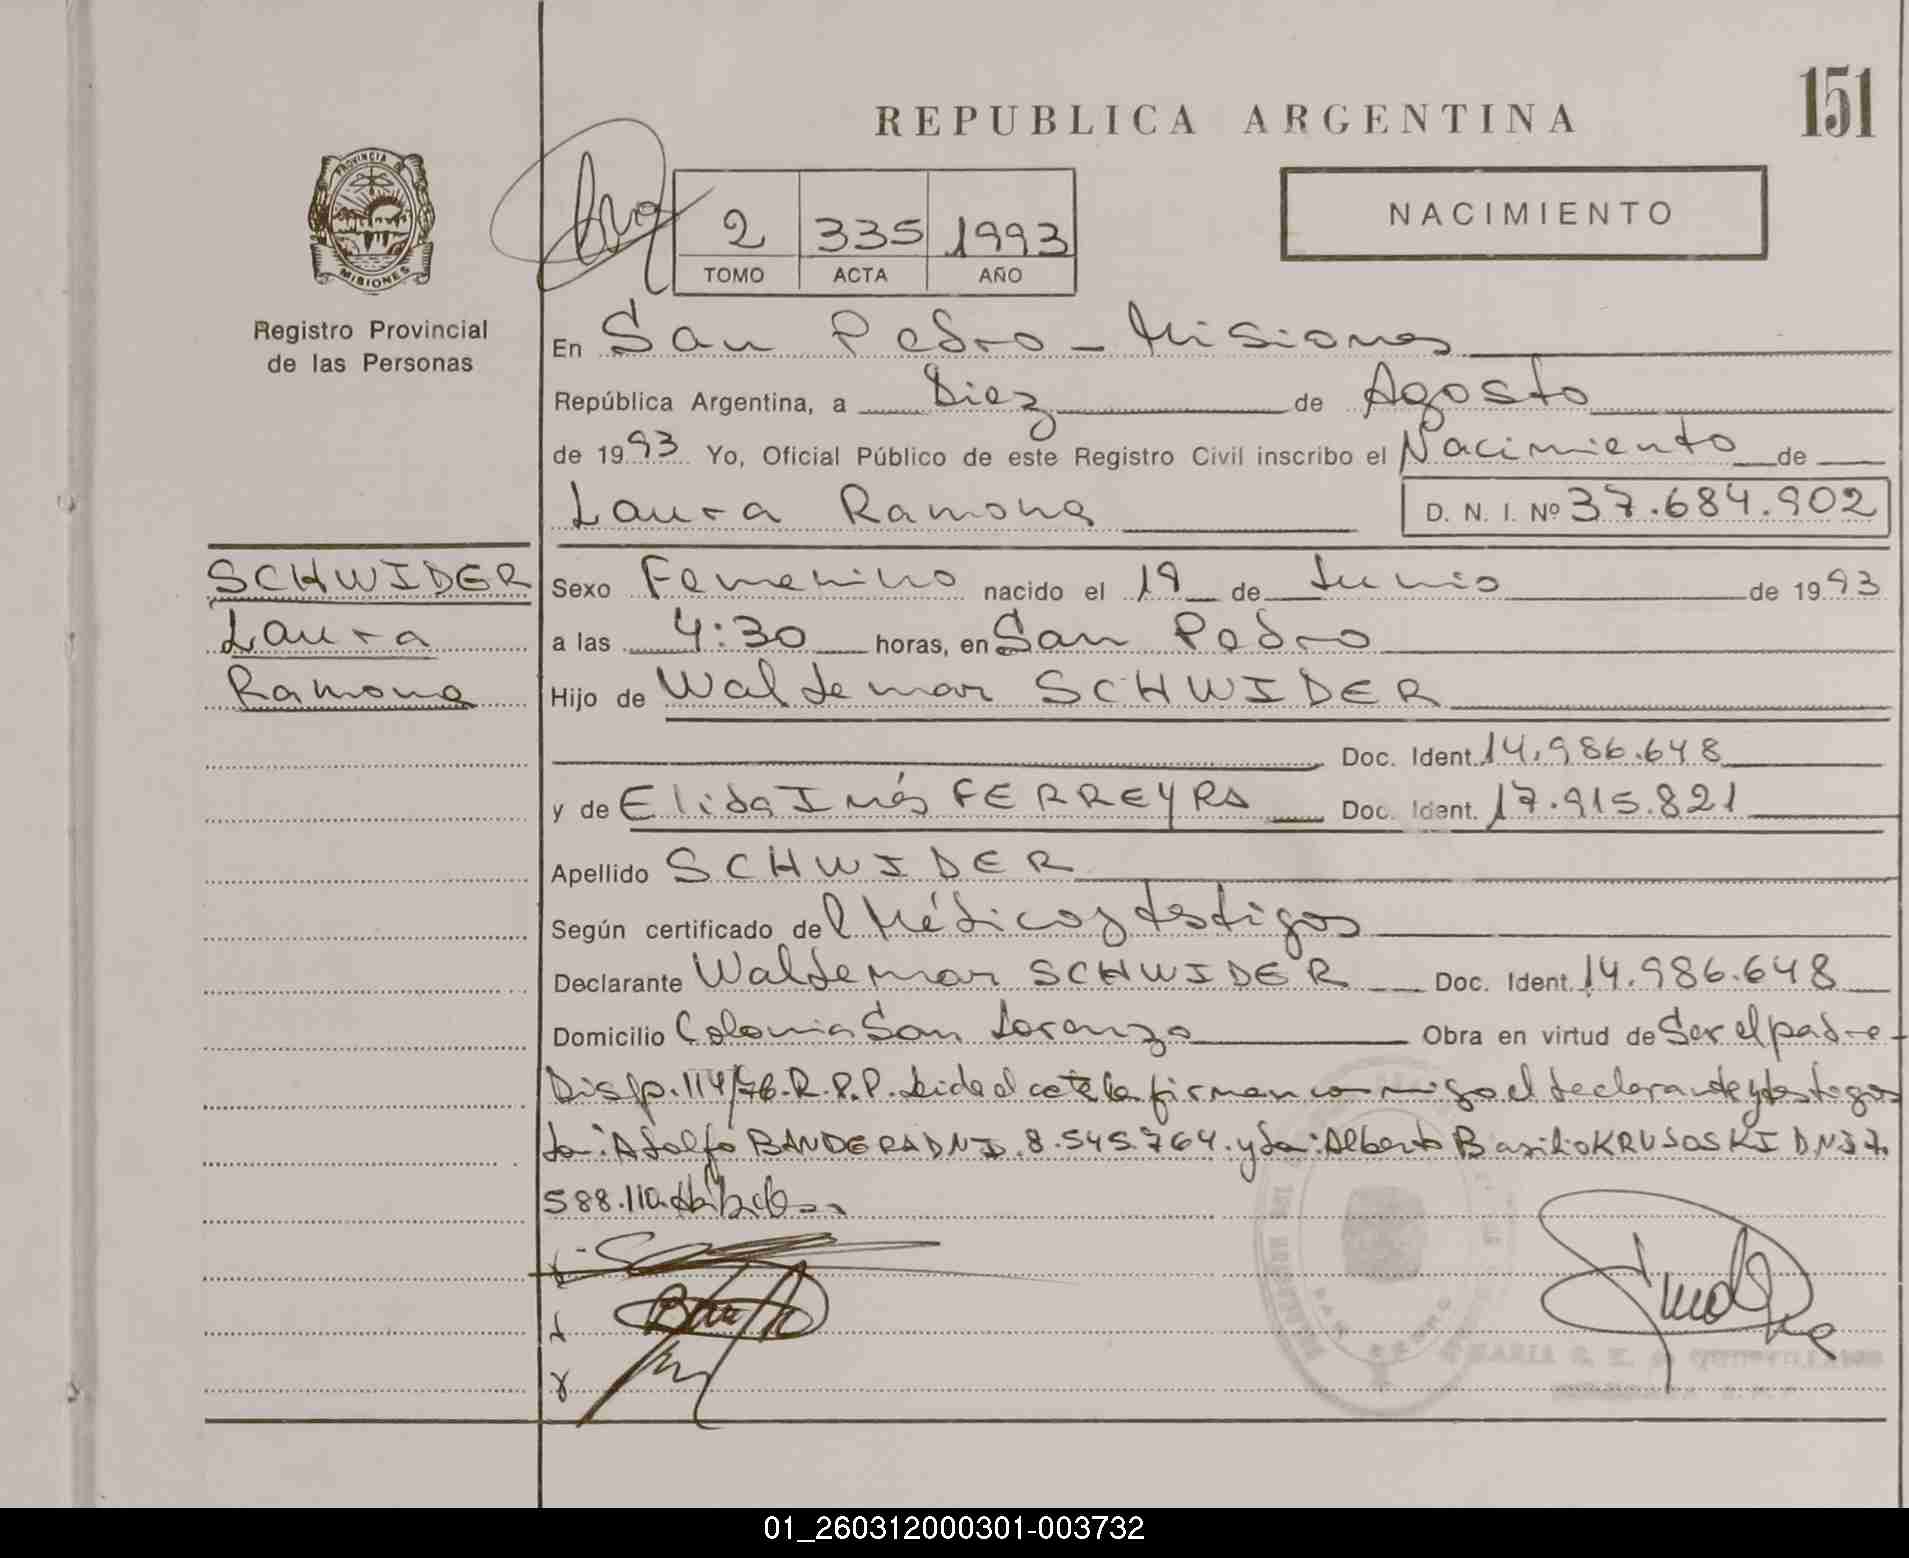 151
REPUBLICA ARGENTINA
NACIMIENTO
PROVINCIA DE
MISIONES
Registro Provincial
de las Personas
2 335 1993
TOMO ACTA AÑO
En San Pedro - Misiones
República Argentina, a Diez de Agosto
de 1993 Yo, Oficial Público de este Registro Civil inscribo el Nacimiento de
Laura Ramona D. N. I. Nº 37.684.902
SCHWIDER
Laura
Ramona
Sexo Femenino nacido el 19 de Junio de 1993
a las 4:30 horas, en San Pedro
Hijo de Waldemar SCHWIDER
Doc. Ident. 14.986.648
y de Elida Inés FERREYRA Doc. Ident. 17.915.821
Apellido SCHWIDER
Según certificado del Médico y testigos
Declarante Waldemar SCHWIDER Doc. Ident. 14.986.648
Domicilio Colonia San Lorenzo Obra en virtud de Ser el padre-
Disp. 114/76. R.P.P. Leida el acta la firman conmigo el declarante y testigos
Adolfo BANDERA DNI. 8.545.764. y Alberto Basilio KRUSOSKI DNI 7.
588.110.
01_260312000301-003732